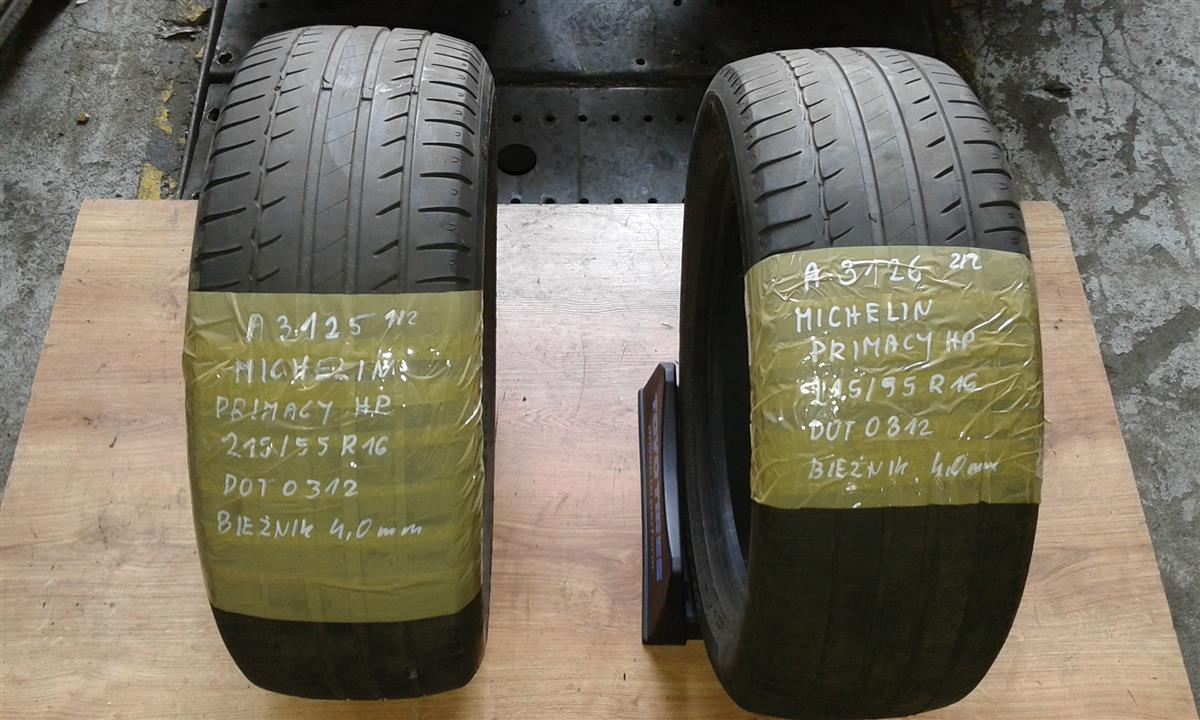 A 3125 1/2
MICHELIN
PRIMACY HP
215/55 R16
DOT 0312
BIEŻNIK 4,0mm
A 3126 2/2
MICHELIN
PRIMACY HP
215/55 R16
DOT 0312
BIEŻNIK 4,0mm
TOYO TIRES